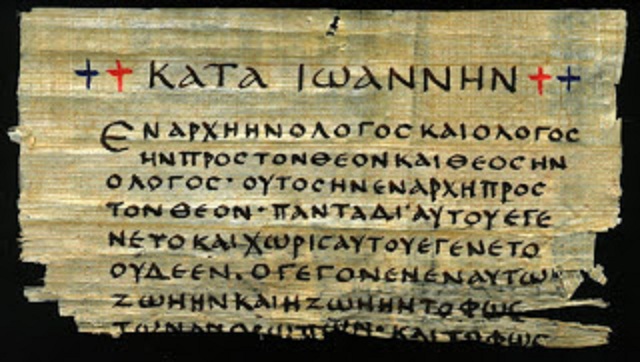 ΚΑΤΑ ΙΩΑΝΝΗΝ
ΕΝΑΡΧΗΗΝΟΛΟΓΟϹΚΑΙΟΛΟΓΟϹ
ΗΝΠΡΟϹΤΟΝΘΕΟΝΚΑΙΘΕΟϹΗΝ
ΟΛΟΓΟϹ· ΟΥΤΟϹΗΝΕΝΑΡΧΗΠΡΟϹ
ΤΟΝΘΕΟΝ·ΠΑΝΤΑΔΙ'ΑΥΤΟΥΕΓΕ
ΝΕΤΟΚΑΙΧΩΡΙϹΑΥΤΟΥΕΓΕΝΕΤΟ
ΟΥΔΕΕΝ.ΟΓΕΓΟΝΕΝΕΝΑΥΤΩ
ΖΩΗΗΝΚΑΙΗΖΩΗΗΝΤΟΦΩϹ
ΤΩΝΑΝΘΡΩΠΩΝ·ΚΑΙΤΟΦΩϹ